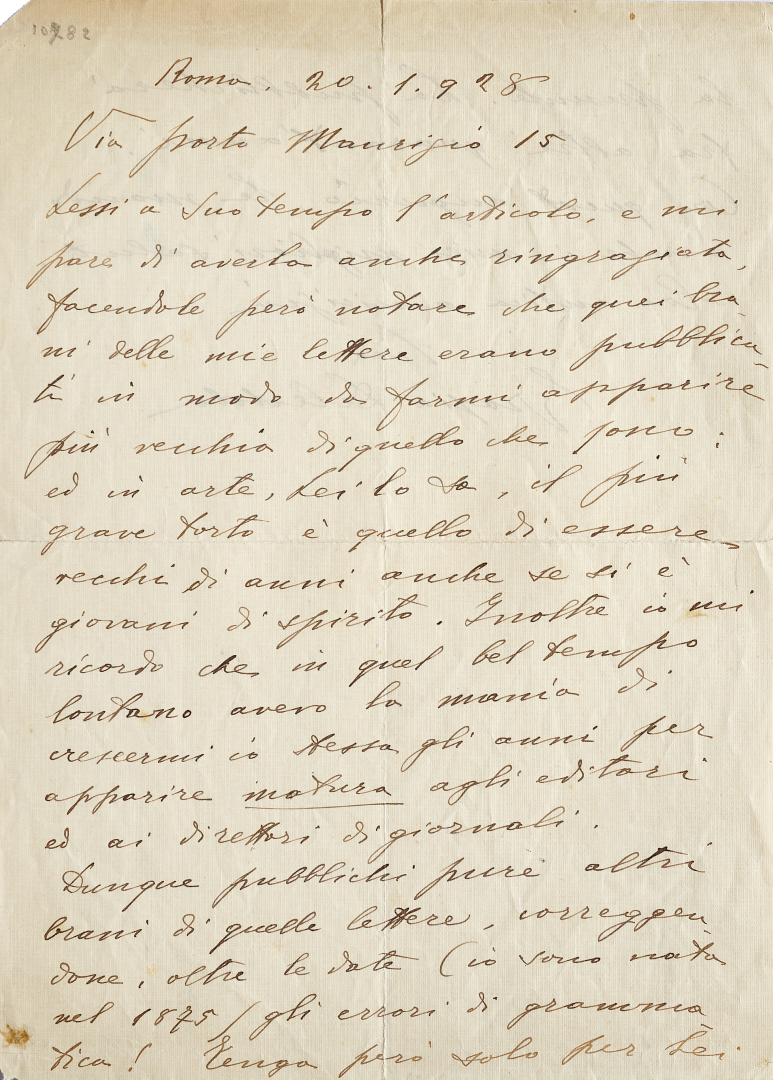 10782
Roma. 20. 1. 928
Via Porto Maurizio 15
Lessi a suo tempo l'articolo, e mi
pare di averla anche ringraziata,
facendole però notare che quei bra-
ni delle mie lettere erano pubblica-
ti in modo da farmi apparire
più vecchia di quello che sono:
ed in arte, Lei lo sa, il più
grave torto è quello di essere
vecchi di anni anche se si è
giovani di spirito. Inoltre io mi
ricordo che in quel bel tempo
lontano avevo la mania di
crescermi io stessa gli anni per
apparire matura agli editori
ed ai direttori di giornali.
Dunque pubblichi pure altri
brani di quelle lettere, correggen-
done, oltre le date (io sono nata
nel 1875) gli errori di gramma-
tica! Tenga però solo per Lei